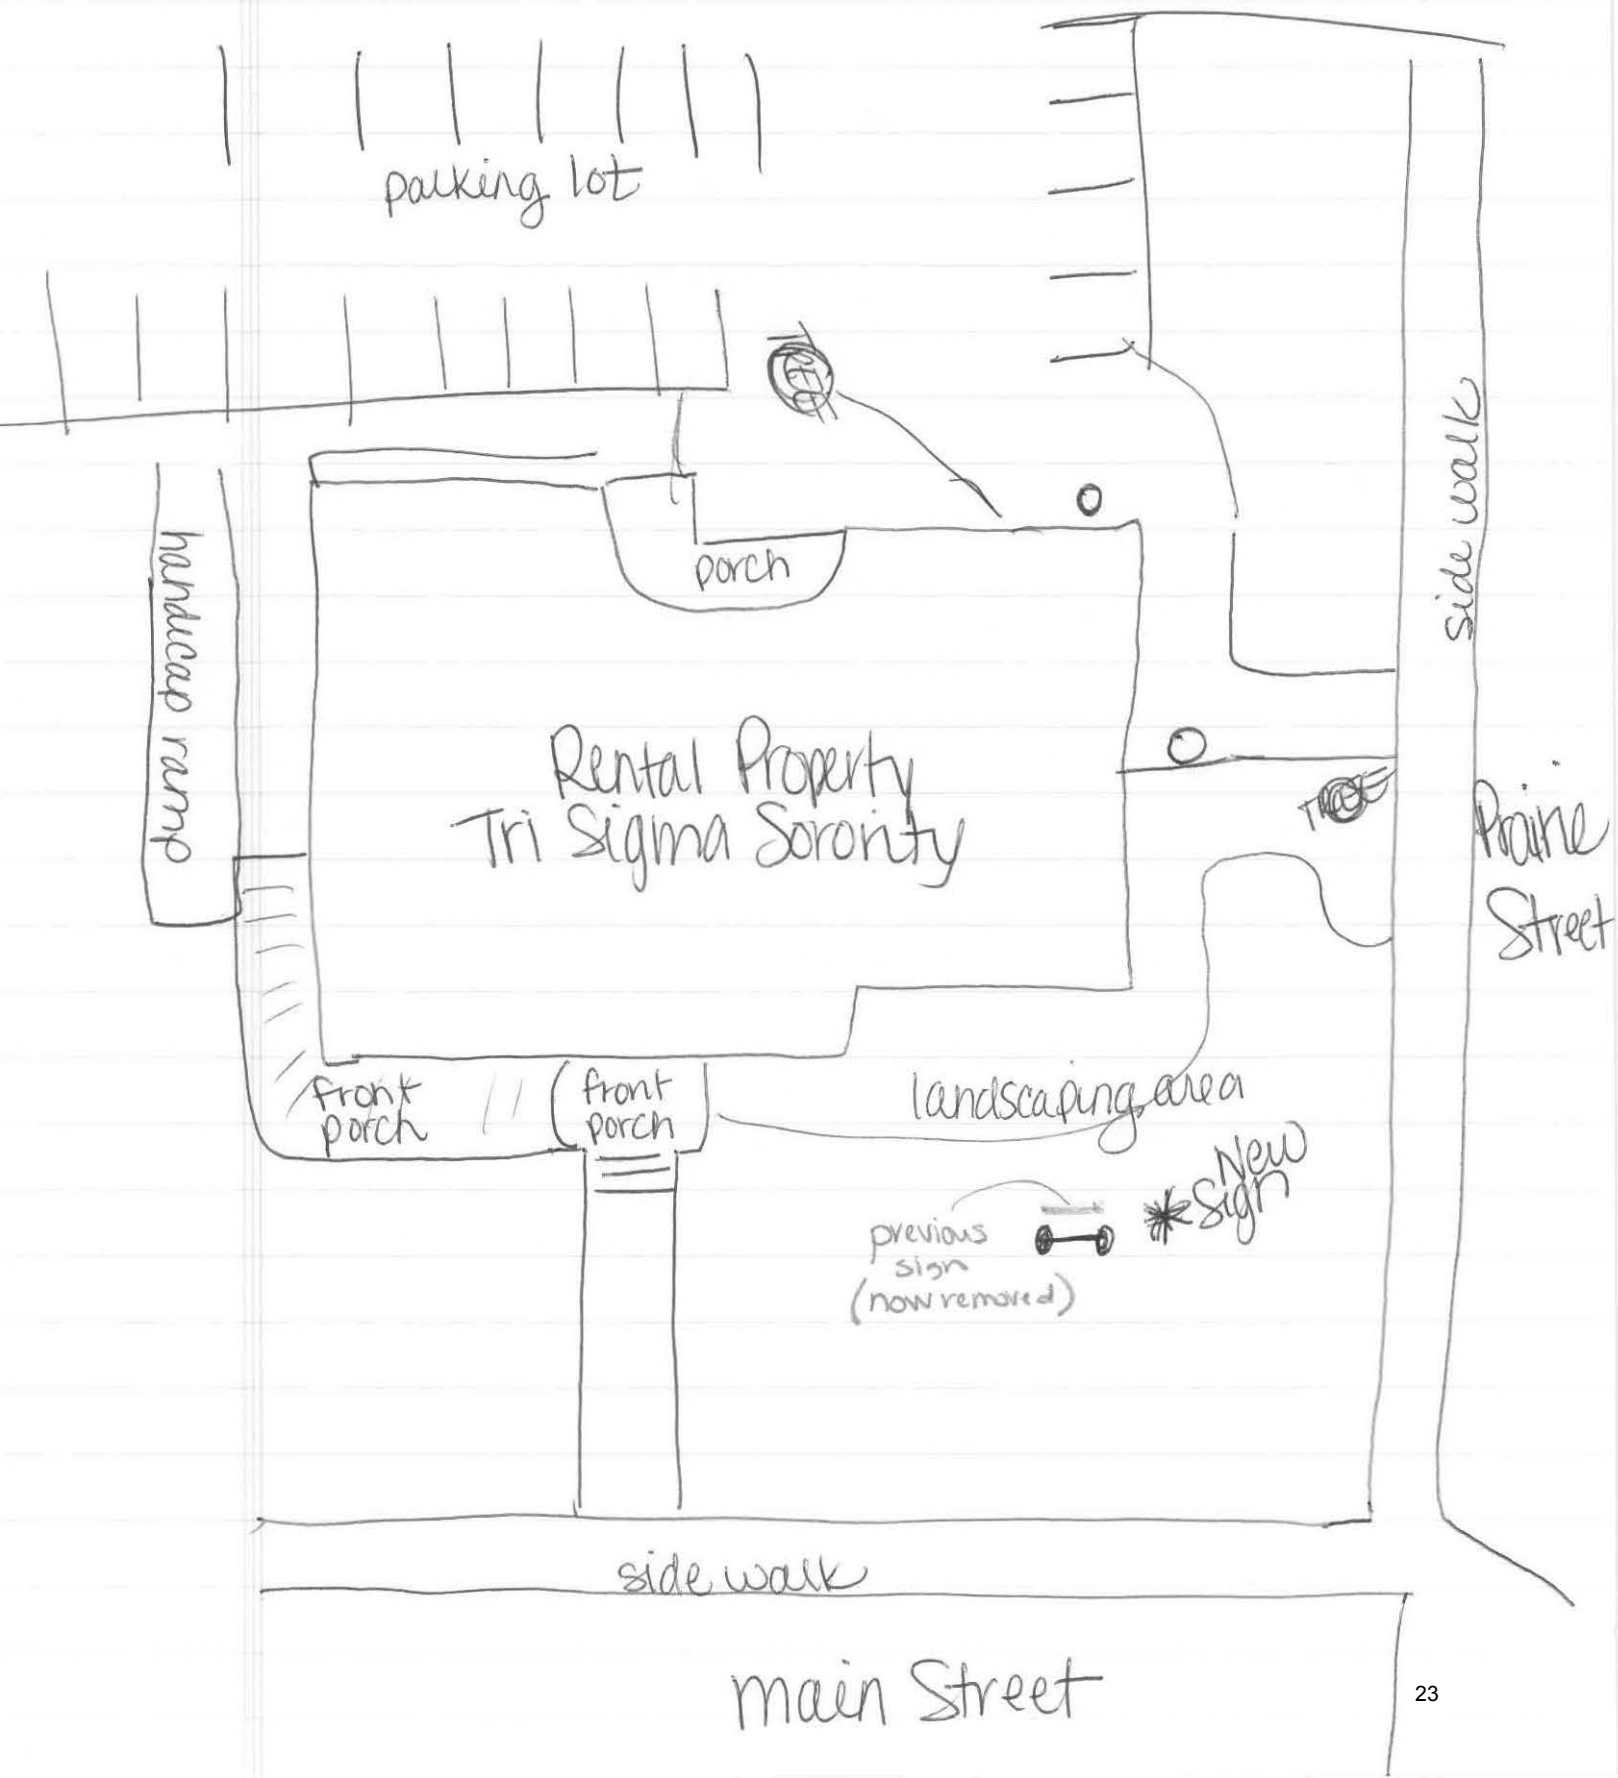 parking lot
side walk
handicap ramp
porch
Rental Property
Tri Sigma Sorority
Prairie
Street
front
porch
front
porch
landscaping area
New
Sign
previous
sign
(now removed)
side walk
main Street
23